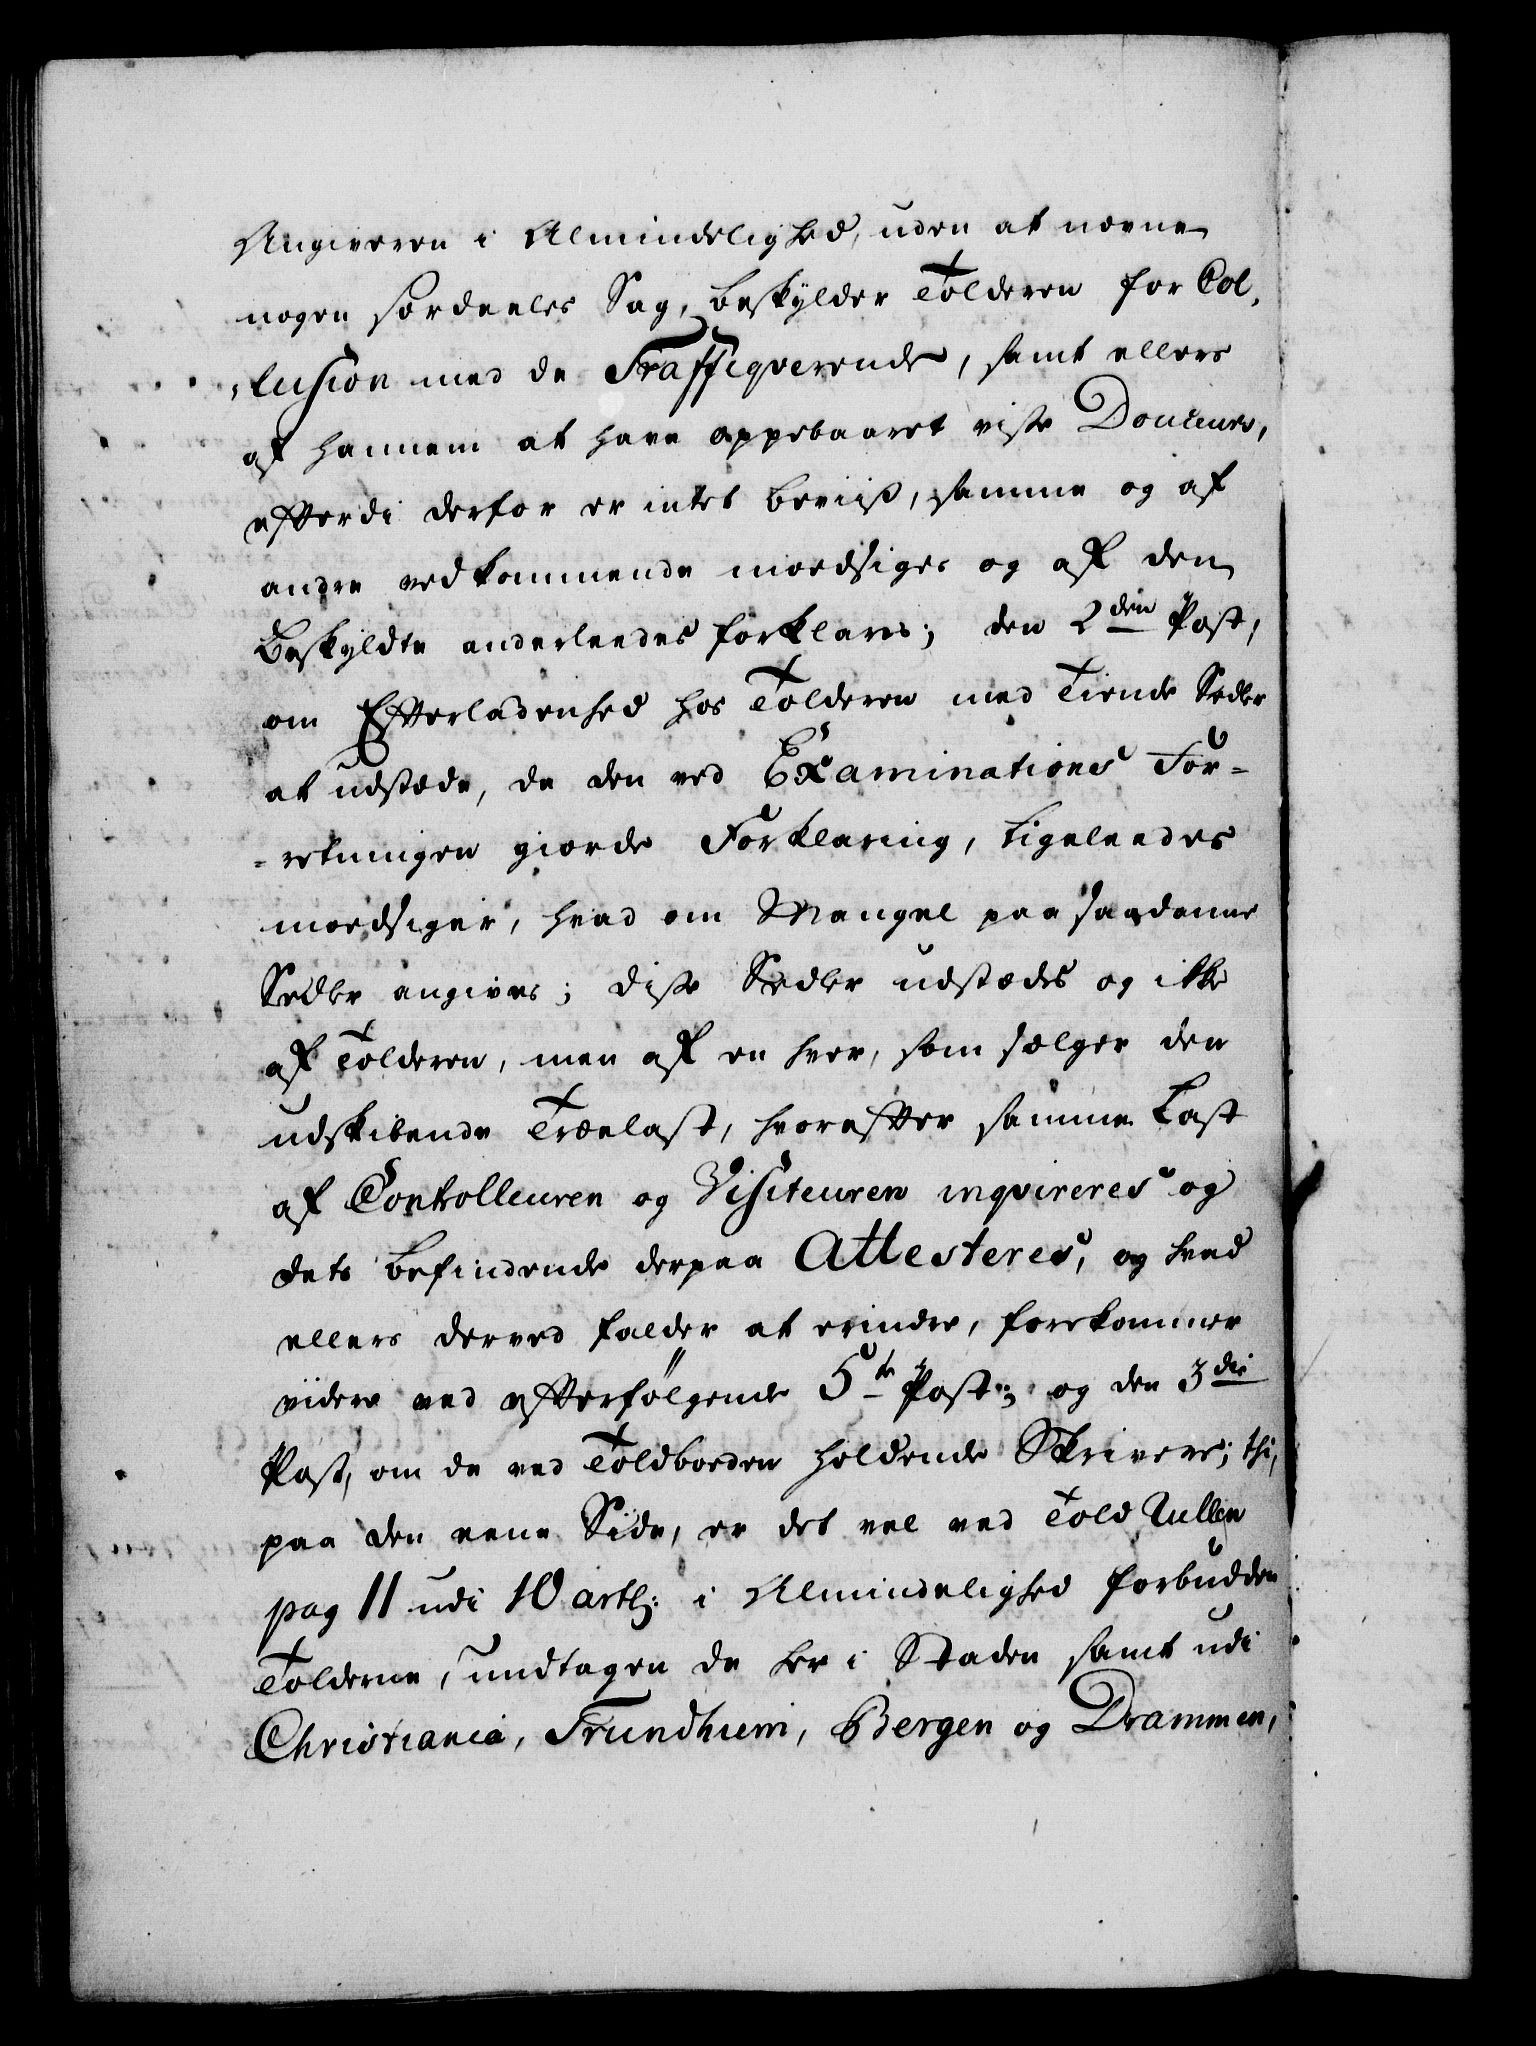 Angiveren i Almindelighed, uden at nævne
nogen særdeeles Sag, beskylder Tolderen for Col,
,lusion med de Traffiqverende, samt ellers
af hannem at have oppebaaret visse Douceurs,
efterdi derfor er intet beviis, samme og af
andre vedkommende modsiges og af den
Beskyldte anderleedes forklares; den 2den Post,
om Efterladenhed hos Tolderen med Tiende Sedler
at udstæde, da den ved Examinations For=
=retningen giorde Forklaring, ligeleedes
modsiger, hvad om Mangel paa saadanne
Sedler angives; disse Sedler udstædes og ikke
af Tolderen, men af en hver, som sælger den
udskibende Trælast, hvorefter samme Last
af Controlleuren og Visiteuren inqvireres og
dets befindende derpaa Attesteres, og hvad
ellers derved falder at erindre, forekommer
videre ved efterfølgende 5te Post; og den 3die
Post, om de ved Toldboden holdende Skrivere; thi,
paa den eene Side, er det vel ved Told Rullen
pag 11 udi 10 artl: i Almindelighed forbudden
Tolderne, undtagen de her i Staden samt udi
Christiania, Trundhiem, Bergen og Drammen,